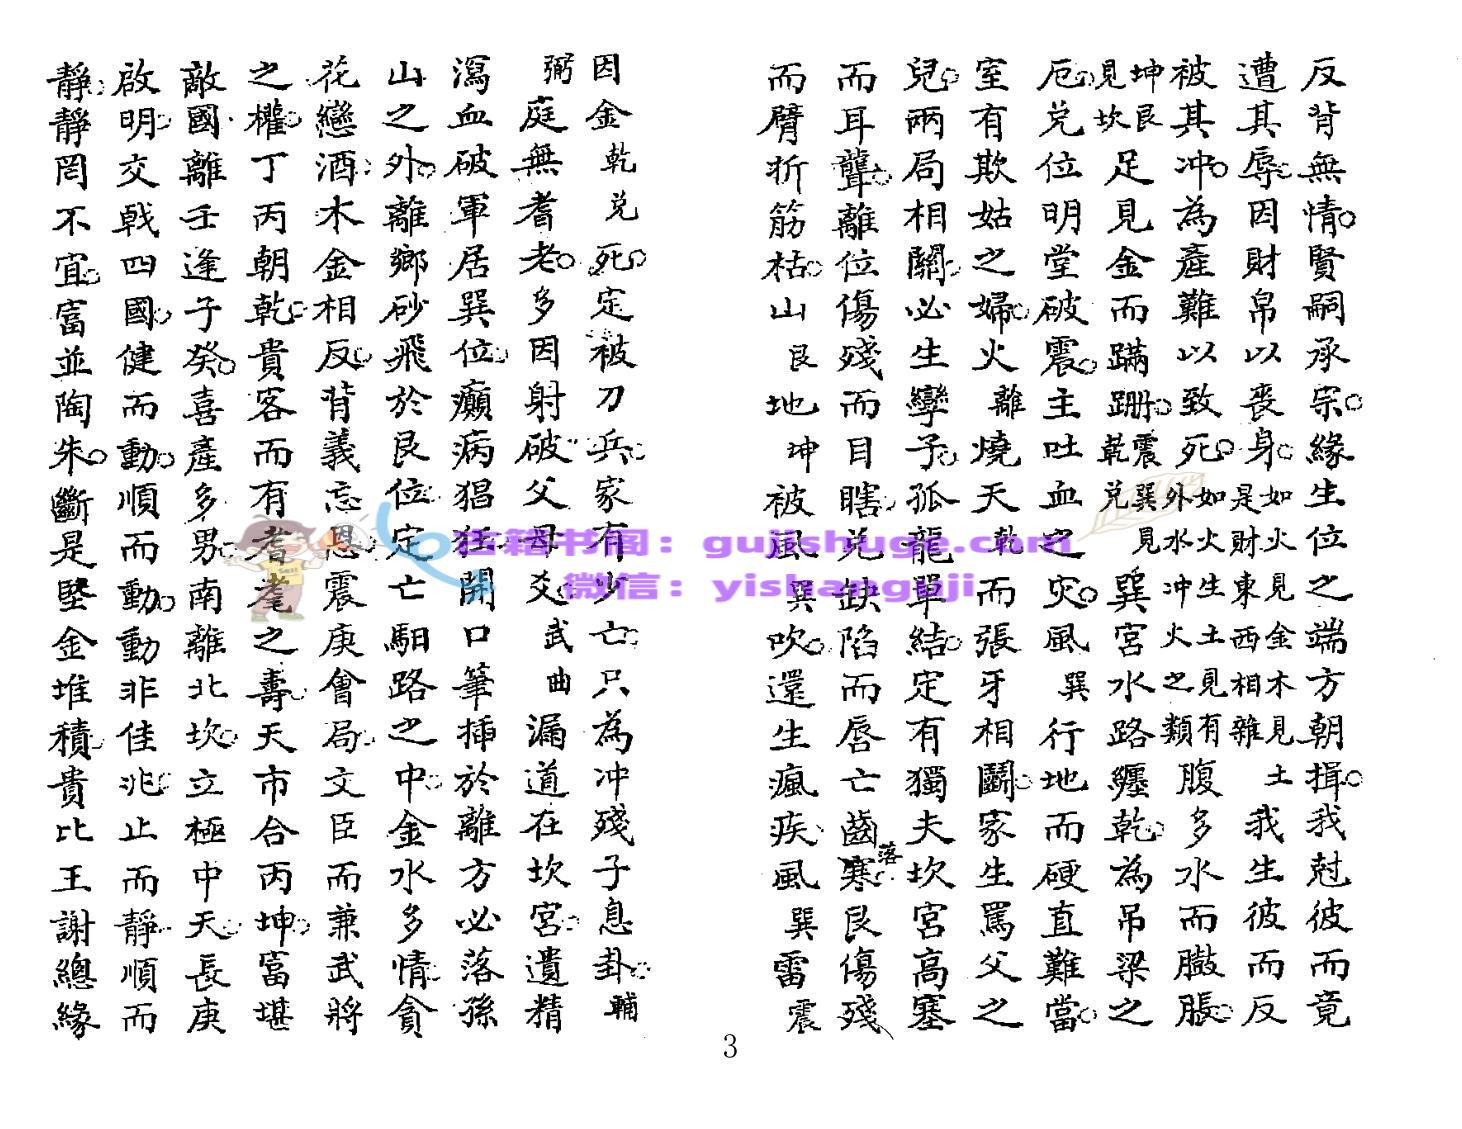 反背無情賢嗣承宗緣生位之端方朝揖我尅彼而竟
遭其辱因財帛以喪身如火見金木見土是財東西相雜我生彼而反
被其冲為產難以致死如火生土見有外水冲火之類腹多水而臌脹
坤艮見坎足見金而蹣跚震巽見乾兌巽宮水路纏乾為吊梁之
厄兌位明堂破震主吐血之災風巽行地而硬直難當
室有欺姑之婦火離燒天乾而張牙相鬭家生罵父之
兒兩局相關必生孿子孤龍單結定有獨夫坎宮高塞
而耳聾離位傷殘而目瞎兌缺陷而唇亡齒落寒艮傷殘
而臂折筋枯山艮地坤被風巽吹還生瘋疾風巽雷震
因金乾兌死定被刀兵家有少亡只為冲殘子息卦輔
弼庭無耆老多因射破父母爻武曲漏道在坎宮遺精
瀉血破軍居巽位癲病猖狂開口筆插於離方必落孫
山之外離鄉砂飛於艮位定亡馹路之中金水多情貪
花戀酒木金相反背義忘恩震庚會局文臣而兼武將
之權丁丙朝乾貴客而有耆耄之壽天市合丙坤富堪
敵國離壬逢子癸喜產多男南離北坎立極中天長庚
啟明交戰四國健而動順而動動非佳兆止而靜順而
靜靜罔不宜富並陶朱斷是堅金堆積貴比王謝總緣
3
古籍书阁：gujishuge.com
微信：yishanguji